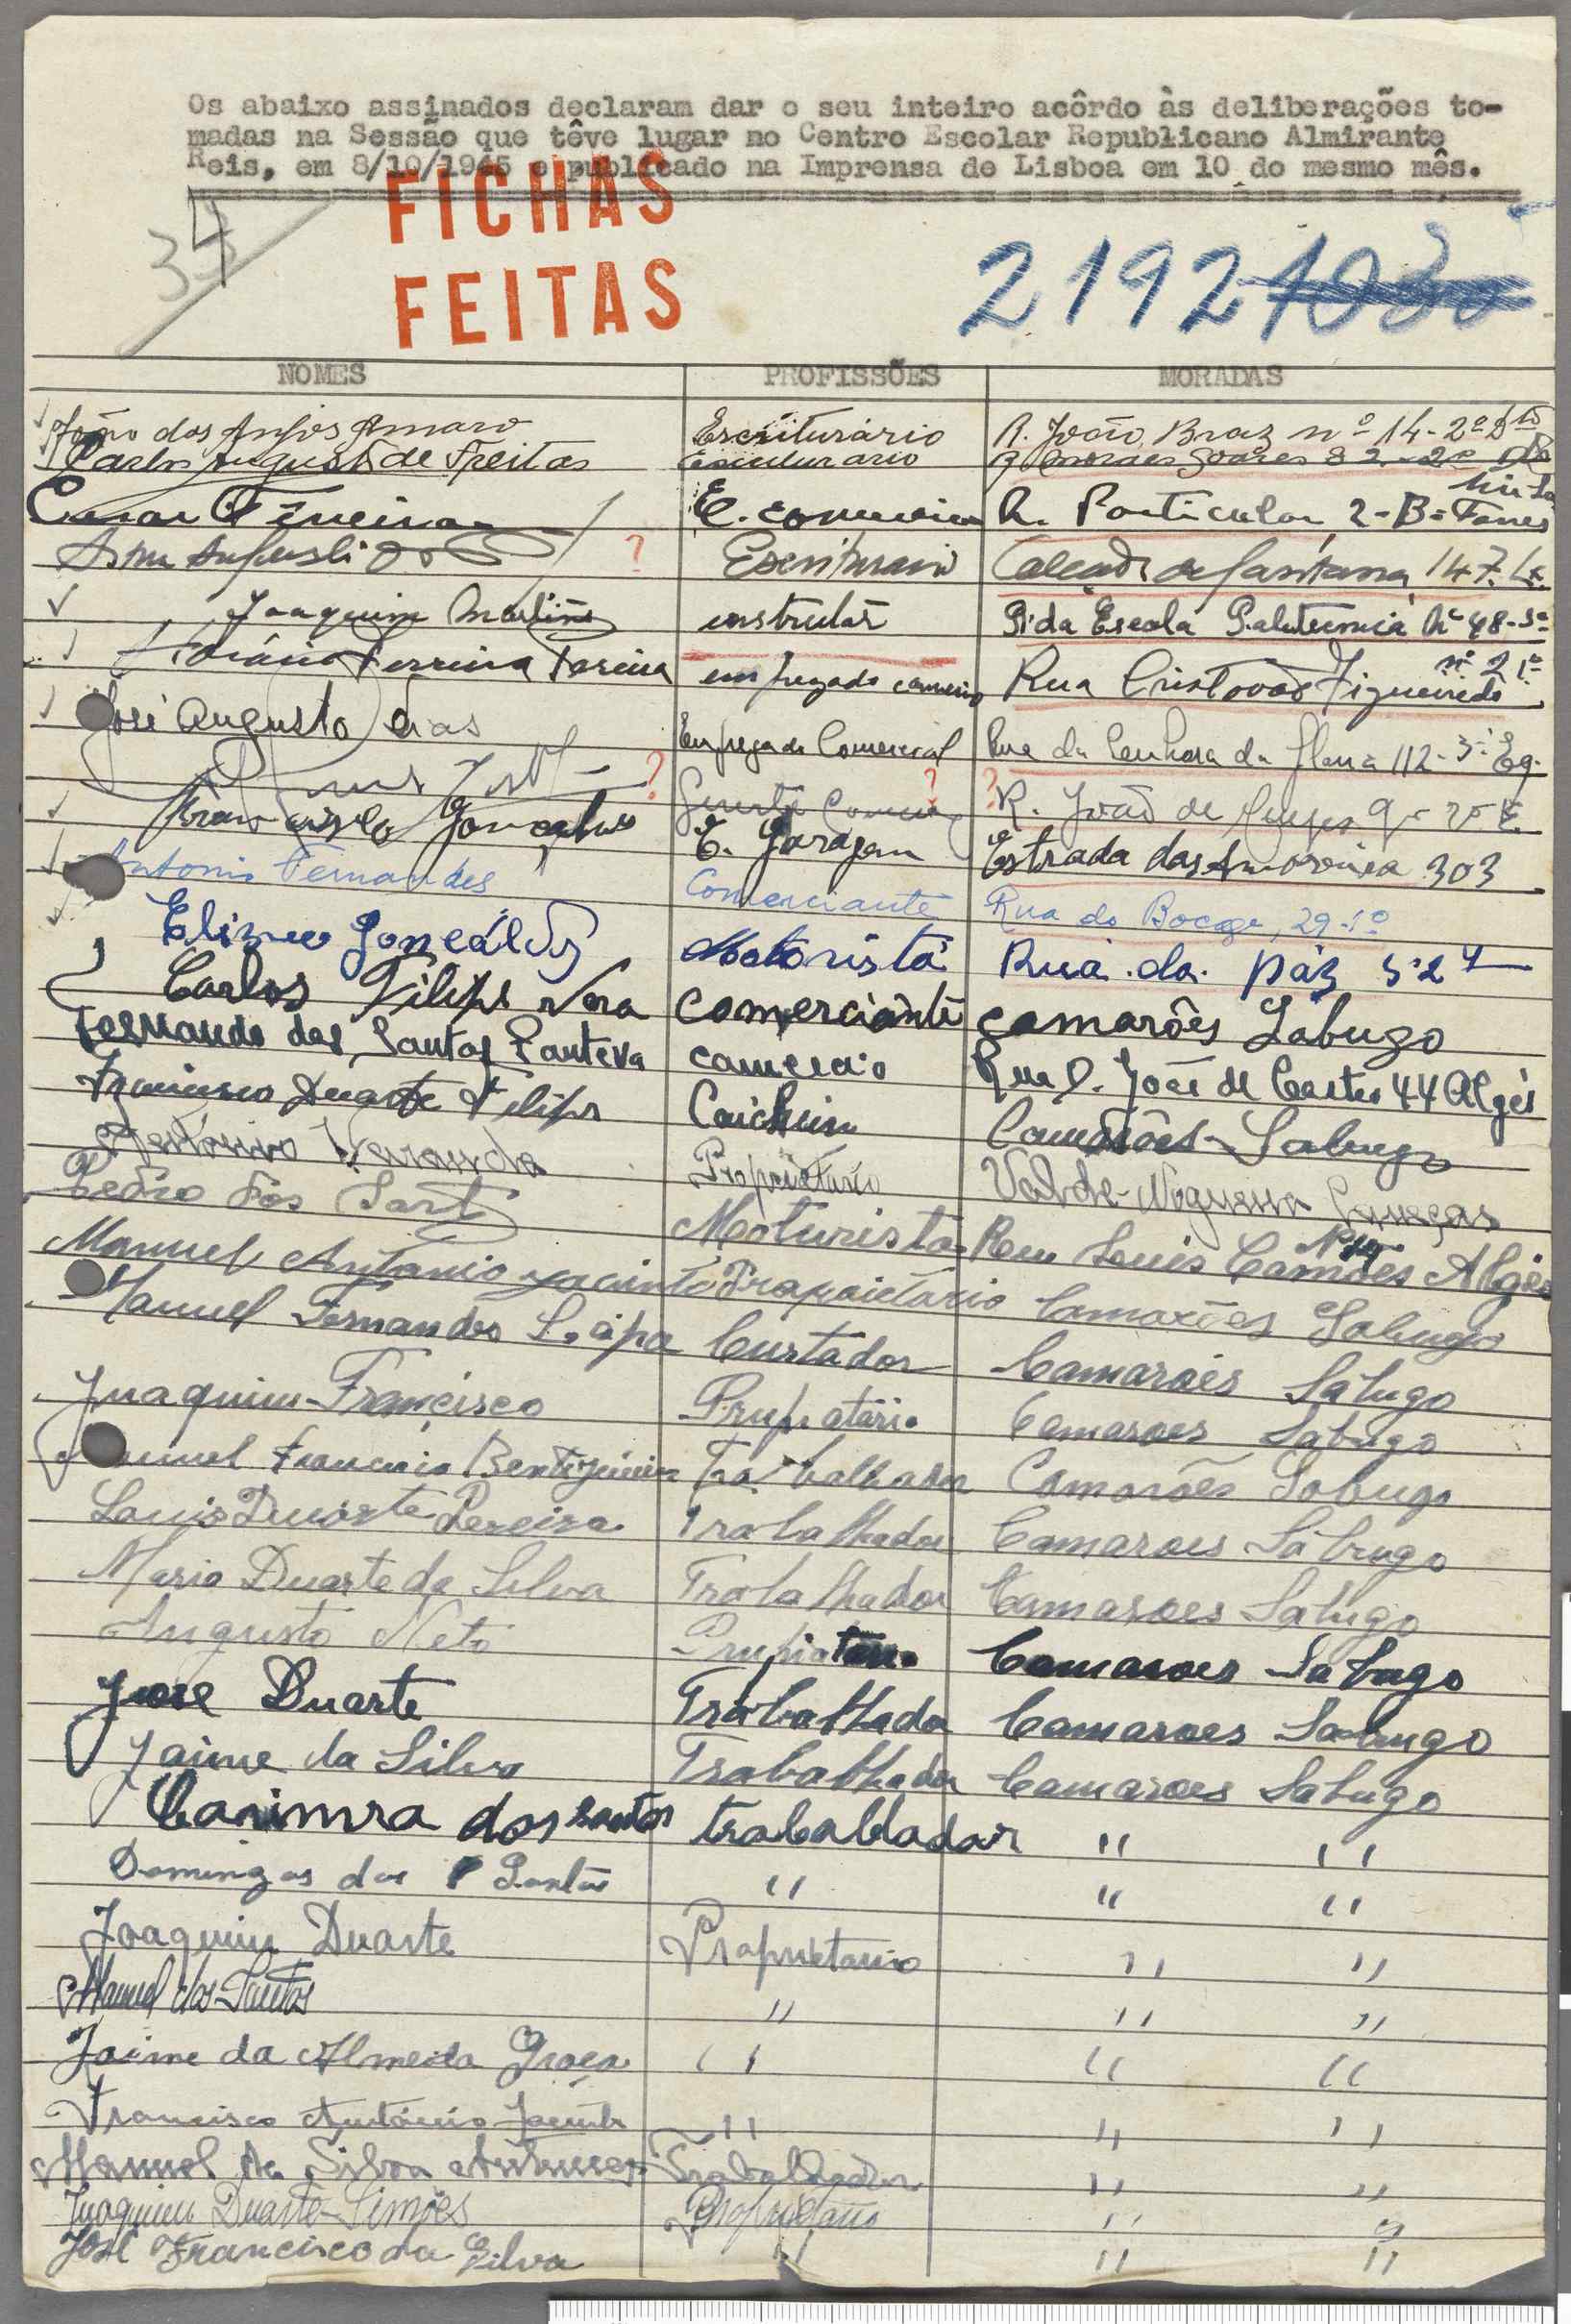 Os abaixo assinados declaram dar o seu inteiro acôrdo às deliberações to-
madas na Sessão que têve lugar no Centro Escolar Republicano Almirante
Reis, em 8/10/1945 e publicado na Imprensa de Lisboa em 10 do mesmo mês.
34
FICHAS
FEITAS
2192
NOMES PROFISSÕES MORADAS
João dos Anjos Amaro Escriturário R. João Braz nº 14-2º Dto
Carlos Augusto de Freitas Escriturario R Moraes Soares 82-2º
R. Particular, 2-B-
? Escriturario Calçada de Santana, 147
Joaquim Martins instrutor R. da Escola Politecnica Nº 48-3º
Ferreira Pereira empregado comercio Rua Cristovão Figueiredo nº 2 1º
José Augusto Dias Empregado Comercial Rua da Senhora da Gloria 112-3º Eq.
? ? ? R. João de 9
Francisco Gonçalves E. Garagem Estrada das Amoreiras 303
Antonio Fernandes Comerciante Rua do Bocage, 29-1º
Elizeu Gonçálvez Motorista Rua da paz 5
Carlos Filipe Vera comerciante camarôes Sabugo
Fernando dos Santos Panteva comercio Rua D. João de Castro 44 Algés
Francisco Duarte Filipe Caicheiro Camarões Sabugo
Veranda Proprietário Val de Nogueira Caneças
Pedro Fos Moturista Rua Luis Camões Nº 19 Algés
Manuel Antonio Jacinto Propietario Camarões Sabugo
Manuel Fernandes Curtador Camarões Sabugo
Juaquim Francisco Prupiatário Camaroes Sabugo
Manuel Francisco Trabalhador Camarões Sabugo
Louis Duarte Pereira Trabalhador Camaroes Sabugo
Mario Duarte da Silva Trabalhador Camaroes Sabugo
Augusto Neto Prupiatario Camaroes Sabugo
Jose Duarte Trabalhador Camaroes Sabugo
Jaime da Silva Trabalhador Camaroes Sabugo
Casimira dos Santos trabalhadair " "
Domingos dos Santos " " "
Joaquim Duarte Proprietario " "
Manuel dos Santos " " "
Jaime da Almeida Graça " " "
Francisco António Jacinto " " "
Manuel da Silva Antunes Trabalhador " "
Juaquim Duarte Simões Proprietario " "
José Francisco da Silva " " "